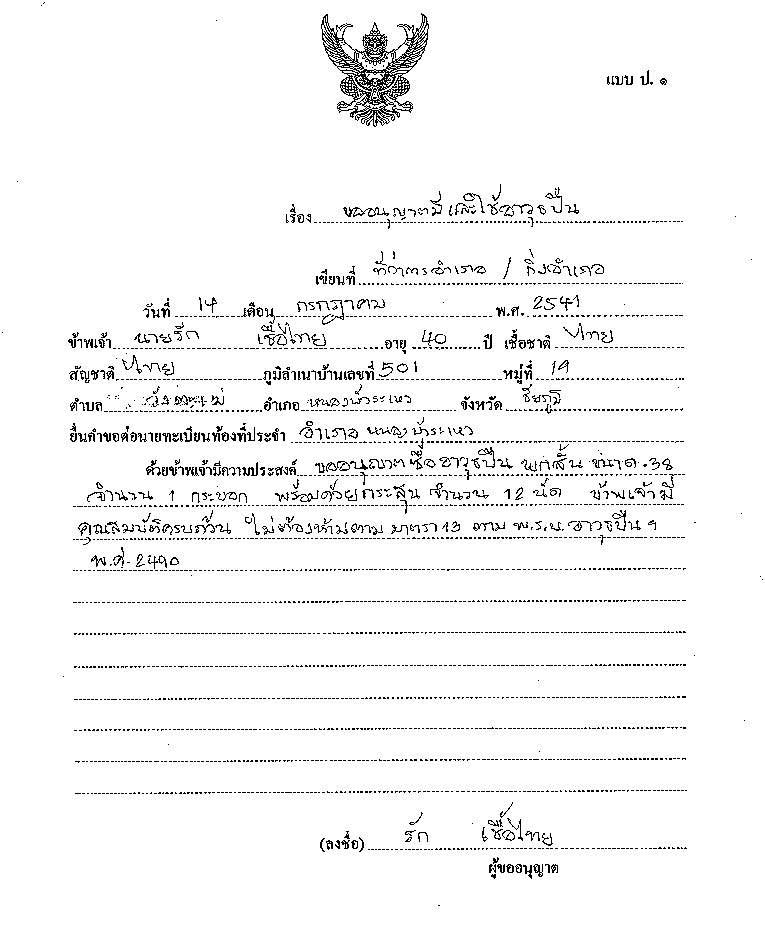 แบบ ป. ๑
เรื่อง ขออนุญาตมีและใช้อาวุธปืน
เขียนที่ ที่ว่าการอำเภอ / กิ่งอำเภอ
วันที่ 14 เดือน กรกฎาคม พ.ศ. 2541
ข้าพเจ้า นายรัก เชื้อไทย อายุ 40 ปี เชื้อชาติ ไทย
สัญชาติ ไทย ภูมิลำเนาบ้านเลขที่ 501 หมู่ที่ 14
ตำบล อำเภอ หนองบัวระเหว จังหวัด ชัยภูมิ
ยื่นคำขอต่อนายทะเบียนท้องที่ประจำ อำเภอ หนองบัวระเหว
ด้วยข้าพเจ้ามีความประสงค์ ขออนุญาตซื้ออาวุธปืน พกสั้น ขนาด .38
จำนวน 1 กระบอก พร้อมด้วยกระสุน จำนวน 12 นัด ข้าพเจ้ามี
คุณสมบัติครบถ้วน ไม่ต้องห้ามตาม มาตรา 13 ตาม พ.ร.บ. อาวุธปืน ฯ
พ.ศ. 2490
(ลงชื่อ) รัก เชื้อไทย
ผู้ขออนุญาต